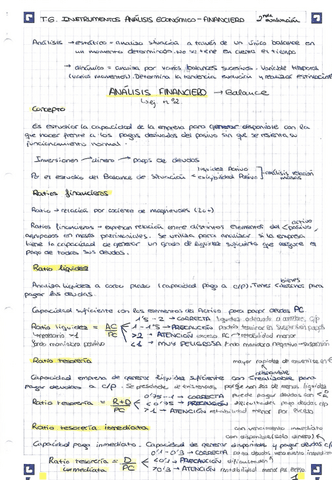 T.6. INSTRUMENTOS ANÁLISIS ECONÓMICO - FINANCIERO 2ª evaluación
Análisis → estático = analiza situación a través de un único balance en
un momento determinación. No se tiene en cuenta el tiempo
→ dinámico = analiza por varios balances sucesivos. Variable temporal
(varios momentos). Determina la tendencia, evolución y realizar estimación
ANÁLISIS FINANCIERO → Balance
Concepto
Es estudiar la capacidad de la empresa para generar disponible con la
que hacer frente a los pagos derivados del pasivo sin que se resienta su
funcionamiento normal.
Inversiones → dinero → pago de deudas
Por el estudio del Balance de Situación = liquidez Activo exigibilidad Pasivo
Ratios financieros
Ratio → relación por cociente de magnitudes
Ratios financieros → expresan relación entre distintos elementos del activo pasivo,
agrupados en masas patrimoniales. Se utiliza para analizar si la empresa
tiene la capacidad de generar un grado de liquidez suficiente que asegure el
pago de todas sus deudas.
Ratio liquidez
Análisis liquidez a corto plazo (capacidad pago a c/p). Tener bienes para
pagar las deudas.
Capacidad suficiente con los elementos de Activo para pagar deudas PC
1'5 - 2 → CORRECTA liquidez adecuada a
Ratio liquidez = AC / PC < 1 - 1'5 → PRECAUCIÓN
>2 → ATENCIÓN rentabilidad menor
fondo maniobra positivo <1 → MUY PELIGROSA fondo maniobra negativo →
Ratio tesorería
Capacidad empresa de generar liquidez suficiente con
pagar deudas a c/p. Se prescinde de existencias porque son los de menos liquidez
CORRECTA puede pagar deudas con
Ratio tesorería = R+D / PC PRECAUCIÓN dificultades pago deudas c/p
>1 → ATENCIÓN rentabilidad menor por exceso
Ratio tesorería inmediata con vencimiento inmediato
con disponible (solo dinero)
Capacidad pago inmediato. Capacidad de generar disponible y pagar deudas c/p
0'1 - 0'3 → CORRECTA paga deuda vencimiento inmediato
Ratio tesorería inmediata = D / PC <0'1 → PRECAUCIÓN dificultades
>0'3 → ATENCIÓN rentabilidad menor por exceso
1